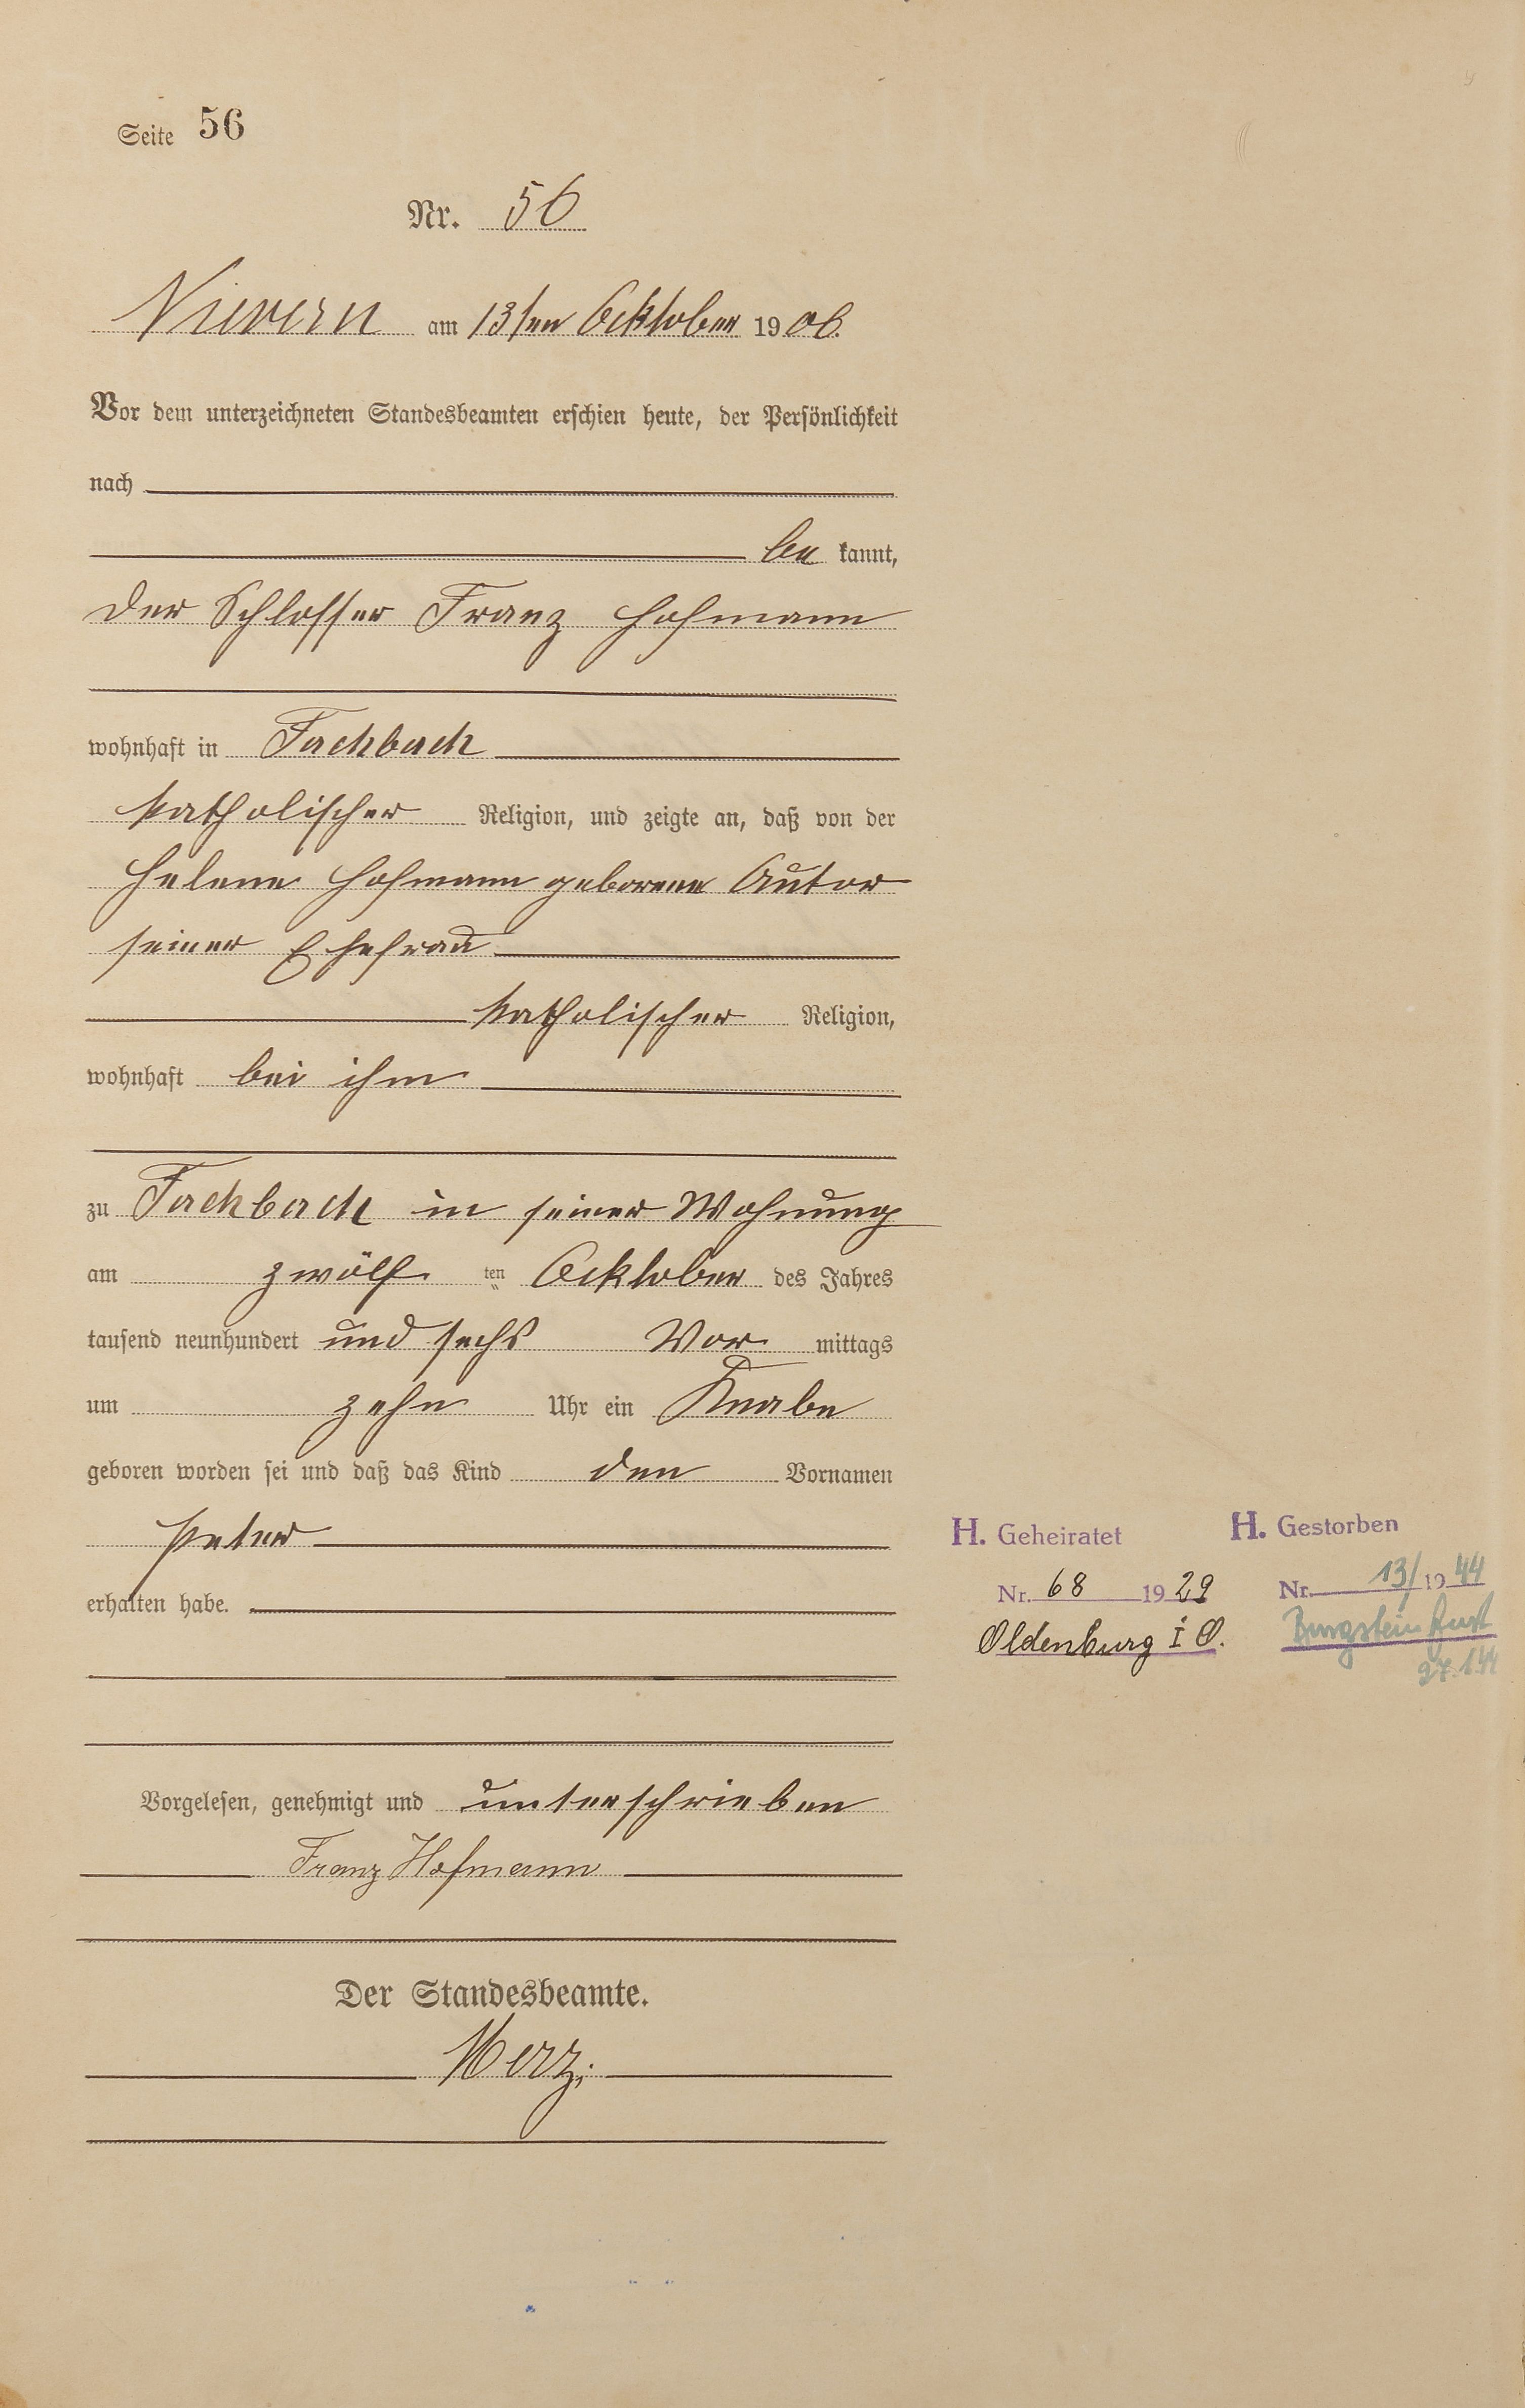 Seite 56
Nr. 56
Nievern am 13ten Ocktober 1906.
Vor dem unterzeichneten Standesbeamten erschien heute, der Persönlichkeit
nach
be kannt,
der Schlosser Franz Hofmann
wohnhaft in Fachbach
katholischer Religion, und zeigte an, daß von der
Helene Hofmann geborene Autor
seiner Ehefrau
katholischer Religion,
wohnhaft bei ihm
zu Fachbach in seiner Wohnung
am zwölf ten Ocktober des Jahres
tausend neunhundert und sechs Vor mittags
um zehn Uhr ein Knabe
geboren worden sei und daß das Kind den Vornamen
Peter
erhalten habe.
H. Geheiratet
Nr. 68 1929
Oldenburg i O.
H. Gestorben
Nr. 13/1944
Burgsteinfurt
27.1.44
Vorgelesen, genehmigt und unterschrieben
Franz Hofmann
Der Standesbeamte.
Merz.